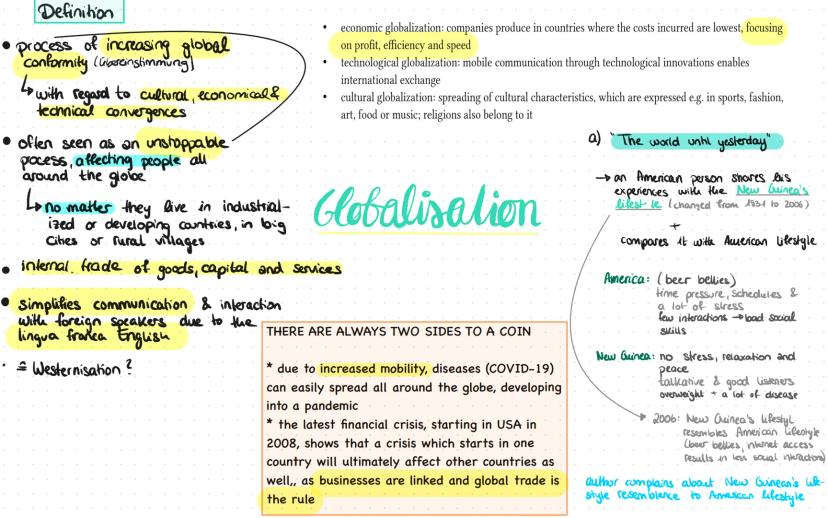 Definition
process of increasing global
conformity (Übereinstimmung)
↳ with regard to cultural, economical &
technical convergences
often seen as an unstoppable
process, affecting people all
around the globe
↳ no matter they live in industrial-
ized or developing countries, in big
cities or rural villages
internal. trade of goods, capital and services
simplifies communication & interaction
with foreign speakers due to the
lingua franca English
≙ Westernisation?
• economic globalization: companies produce in countries where the costs incurred are lowest, focusing
on profit, efficiency and speed
• technological globalization: mobile communication through technological innovations enables
international exchange
• cultural globalization: spreading of cultural characteristics, which are expressed e.g. in sports, fashion,
art, food or music; religions also belong to it
Globalisation
THERE ARE ALWAYS TWO SIDES TO A COIN
* due to increased mobility, diseases (COVID-19)
can easily spread all around the globe, developing
into a pandemic
* the latest financial crisis, starting in USA in
2008, shows that a crisis which starts in one
country will ultimately affect other countries as
well,, as businesses are linked and global trade is
the rule
a) "The world until yesterday"
→ an American person shares his
experiences with the New Guinea's
(changed from to 2006)
+
compares it with American lifestyle
America: (beer bellies)
time pressure, schedules &
a lot of stress
few interactions → bad social
skills
New Guinea: no stress, relaxation and
peace
talkative & good listeners
overweight + a lot of disease
2006: New Guinea's lifestyl
resembles American lifestyle
(beer bellies, internet access
results in less social interactions)
author complains about New Guinean's life-
style resemblence to American lifestyle